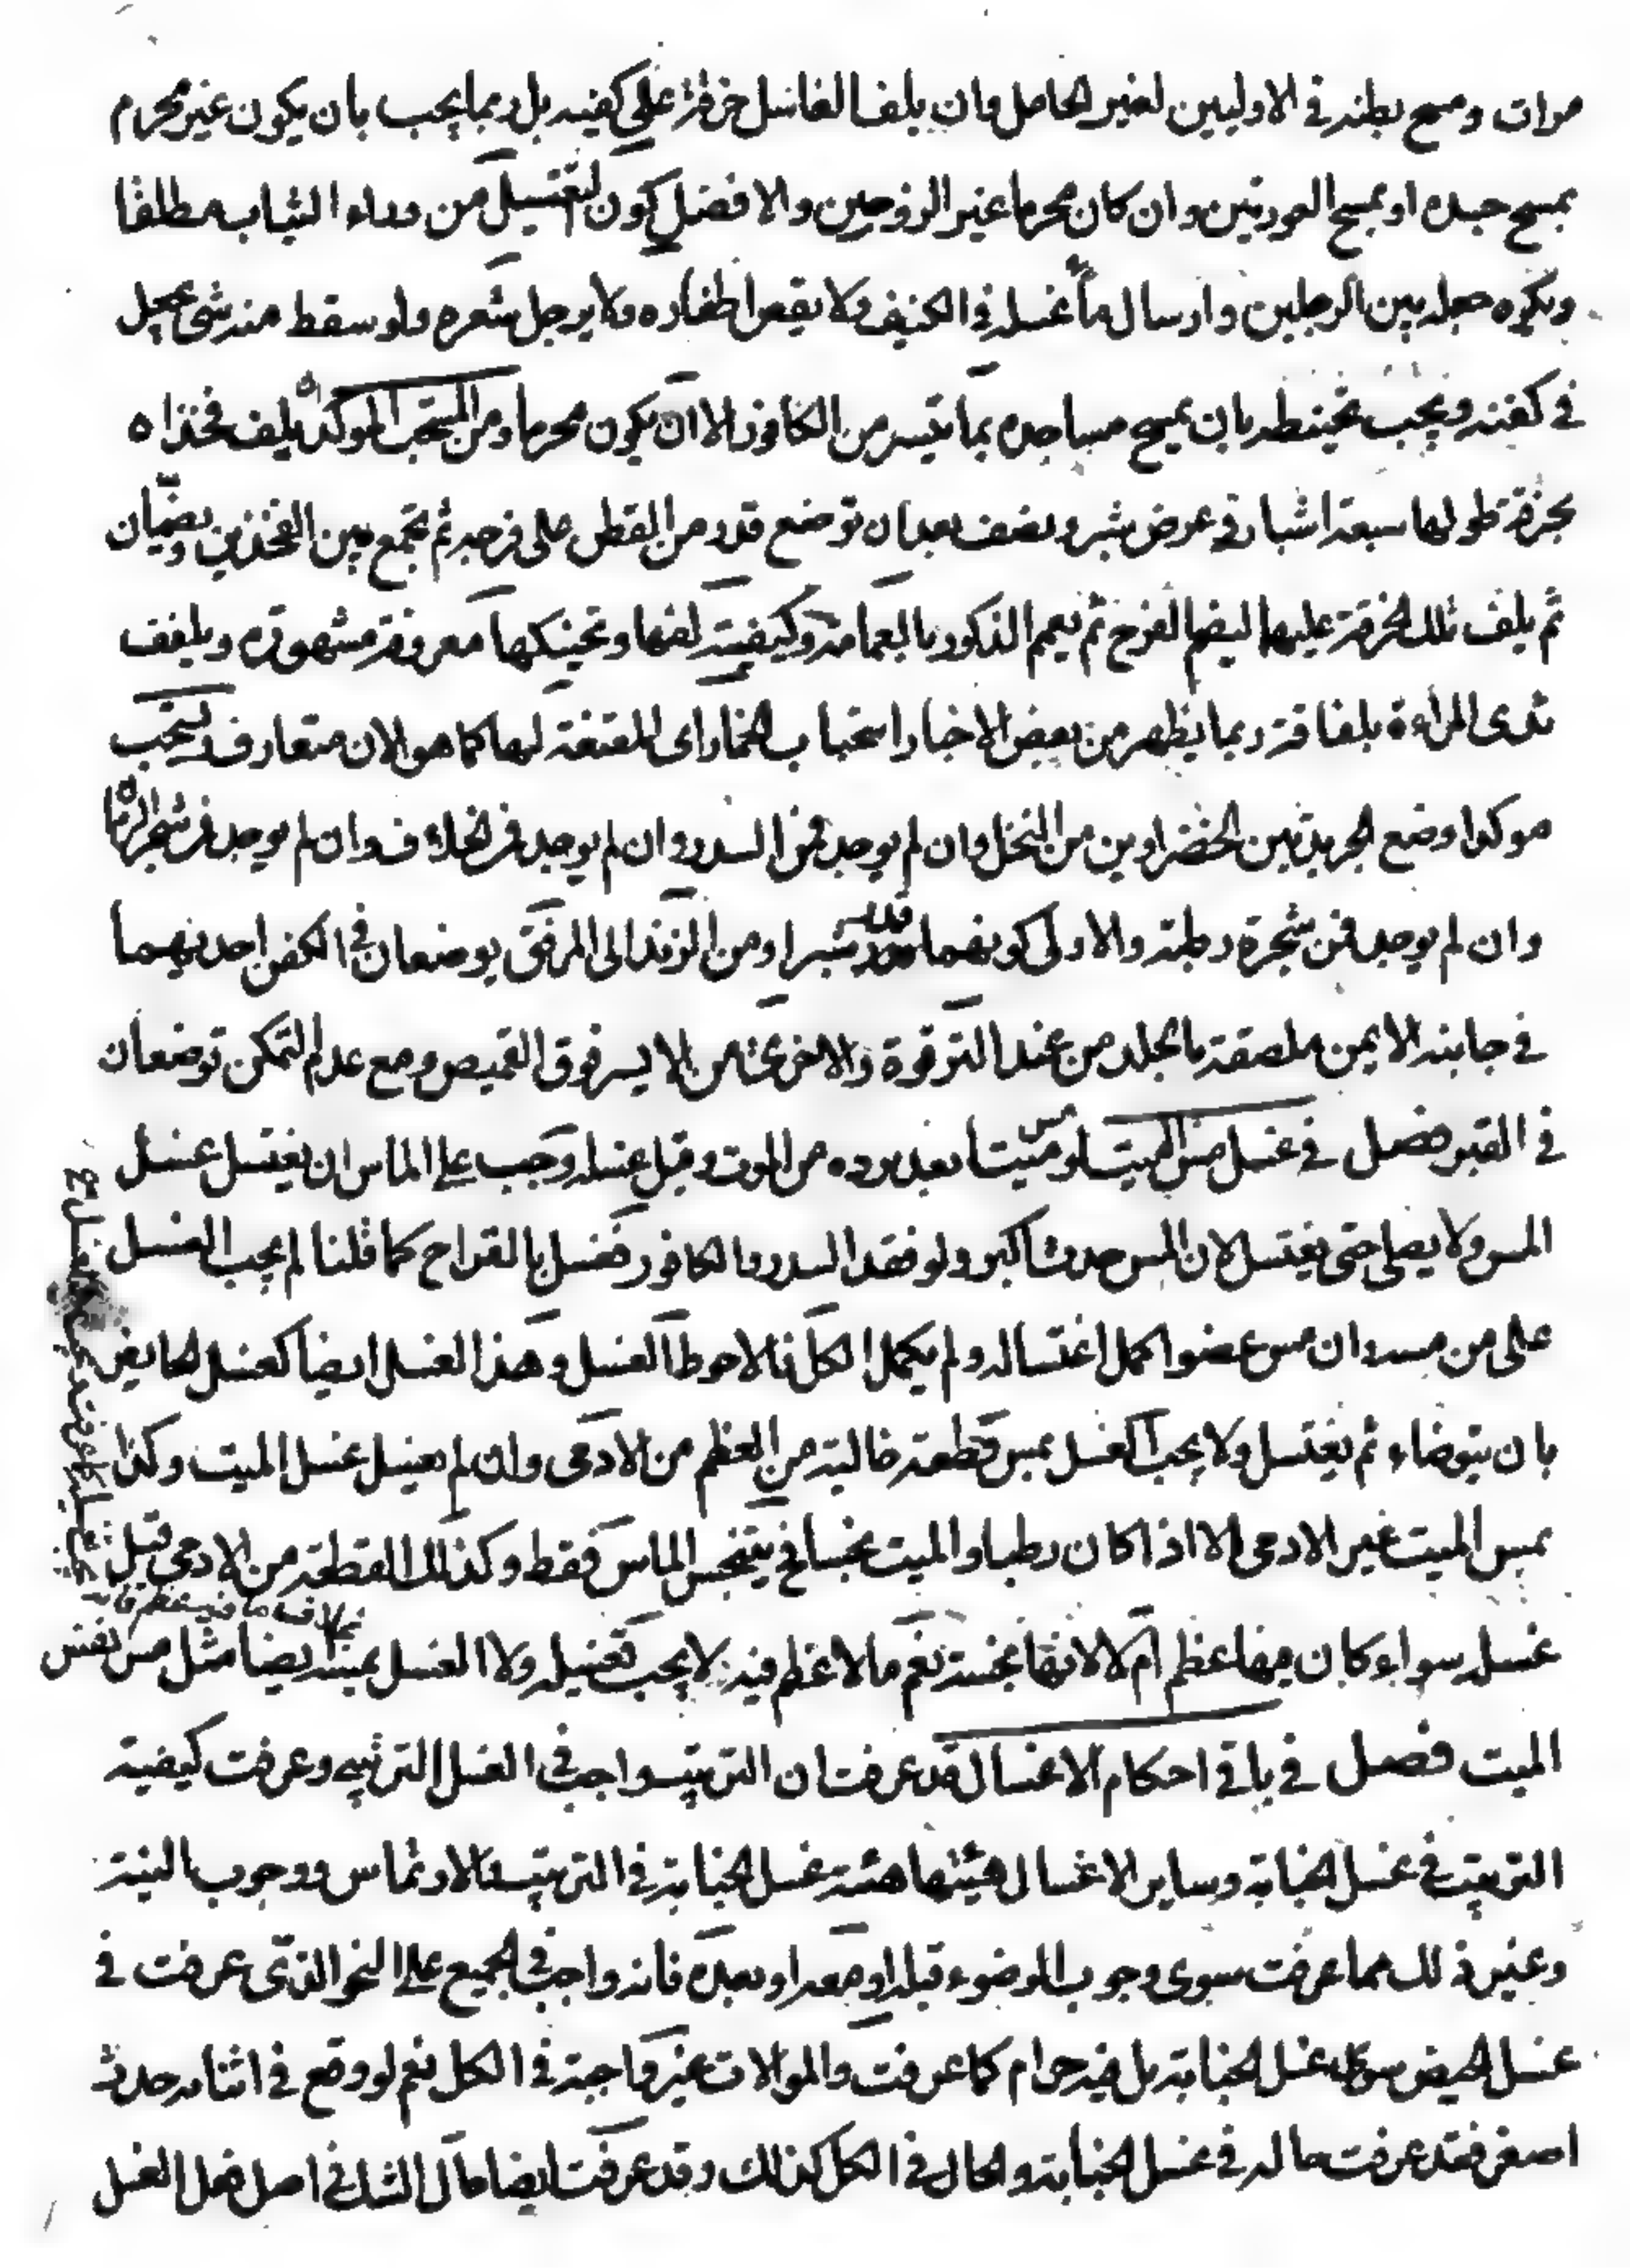 مرات ومسح بطنه في الاوليين لغير الحامل وان يلف الغاسل خرقة على كفيه بل ربما يجب بان يكون غير محرم
يمسح جسده او يمسح العورتين وان كان محرما غير الزوجين والافضل كون التغسيل من وراء الثياب مطلقا
ويكره جعله بين الرجلين وارسال ماء غسله في الكنيف ولا يقص اظفاره ولا يرجل شعره ولو سقط منه شئ جعل
في كفنه ويجب تحنيطه بان يمسح مساجده بما تيسر من الكافور الا ان يكون محرما ومن المستحب الموكد ان يلف فخذاه
بخرقة طولها سبعة اشبار في عرض شبر ونصف بعد ان توضع قدر من القطن على فرجه ثم تجمع بين الفخذين ويضمان
ثم يلف تلك الخرقة عليهما ليضم الفرج ثم يعمم الذكور بالعمامة وكيفية لفها وتحنيكها معروفة مشهورة ويلفف
ثدى المراءة بلفافة وربما يظهر من بعض الاخبار استحباب الخمار اى المقنعة لها كما هو الان متعارف ويستحب
موكدا وضع الجريدتين الخضراوين من النخل وان لم يوجد فمن السدر وان لم يوجد فمن الخلاف وان لم يوجد فمن شجر الرمان
وان لم يوجد فمن شجرة رطبة والاولى كونهما قدر شبر او من الزند الى المرفق يوضعان في الكفن احديهما
في جانبه الايمن ملصقة بالجلد من عند الترقوة والاخرى من الايسر فوق القميص ومع عدم التمكن توضعان
في القبر فصل في غسل مس الميت لو مس ميتا بعد برده من الموت وقبل غسله وجب على الماس ان يغتسل غسل
المس ولا يصلى حتى يغتسل لان المس حدث اكبر ولو فقد السدر والكافور فغسل بالقراح كما قلنا لم يجب الغسل
على من مسه وان مس عضوا كمل اغتساله ولم يكمل الكل فالاحوط الغسل وهذا الغسل ايضا كغسل الحايض
بان يتوضاء ثم يغتسل ولا يجب الغسل بمس قطعة خالية من العظم من الادمى وان لم يغسل غسل الميت وكذا
بمس الميت غير الادمى الا اذا كان رطبا والميت نجسا فح يتنجس الماس فقط وكذلك القطعة من الادمى قبل
بخلاف ما فيه عظم فانه
غسله سواء كان فيها عظم ام لا لانها نجسة نعم ما لا عظم فيه لا يجب تغسيله ولا الغسل بمسه ايضا مثل مس نفس
الميت فصل في باقي احكام الاغسال قد عرفت ان الترتيب واجب في الغسل الترتيبي وعرفت كيفية
الترتيب في غسل الجنابة وساير الاغسال هيئتها هيئة غسل الجنابة في الترتيب والارتماس ووجوب النية
وغير ذلك مما عرفت سوى وجوب الوضوء قبله او معه او بعده فانه واجب في الجميع على النحو الذى عرفت في
غسل الحيض سوى غسل الجنابة بل فيه حرام كما عرفت والموالات غير واجبة في الكل نعم لو وقع في اثنائه حدث
اصغر فقد عرفت حاله في غسل الجنابة والحال في الكل كذلك وقد عرفت ايضا حال الشك في اصل فعل الغسل